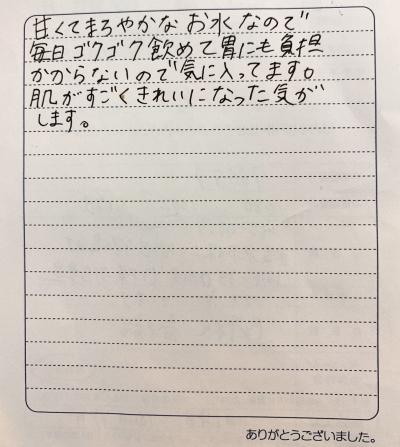 甘くてまろやかなお水なので
毎日ゴクゴク飲めて胃にも負担
かからないので気に入ってます。
肌がすごくきれいになった気が
します。
ありがとうございました。